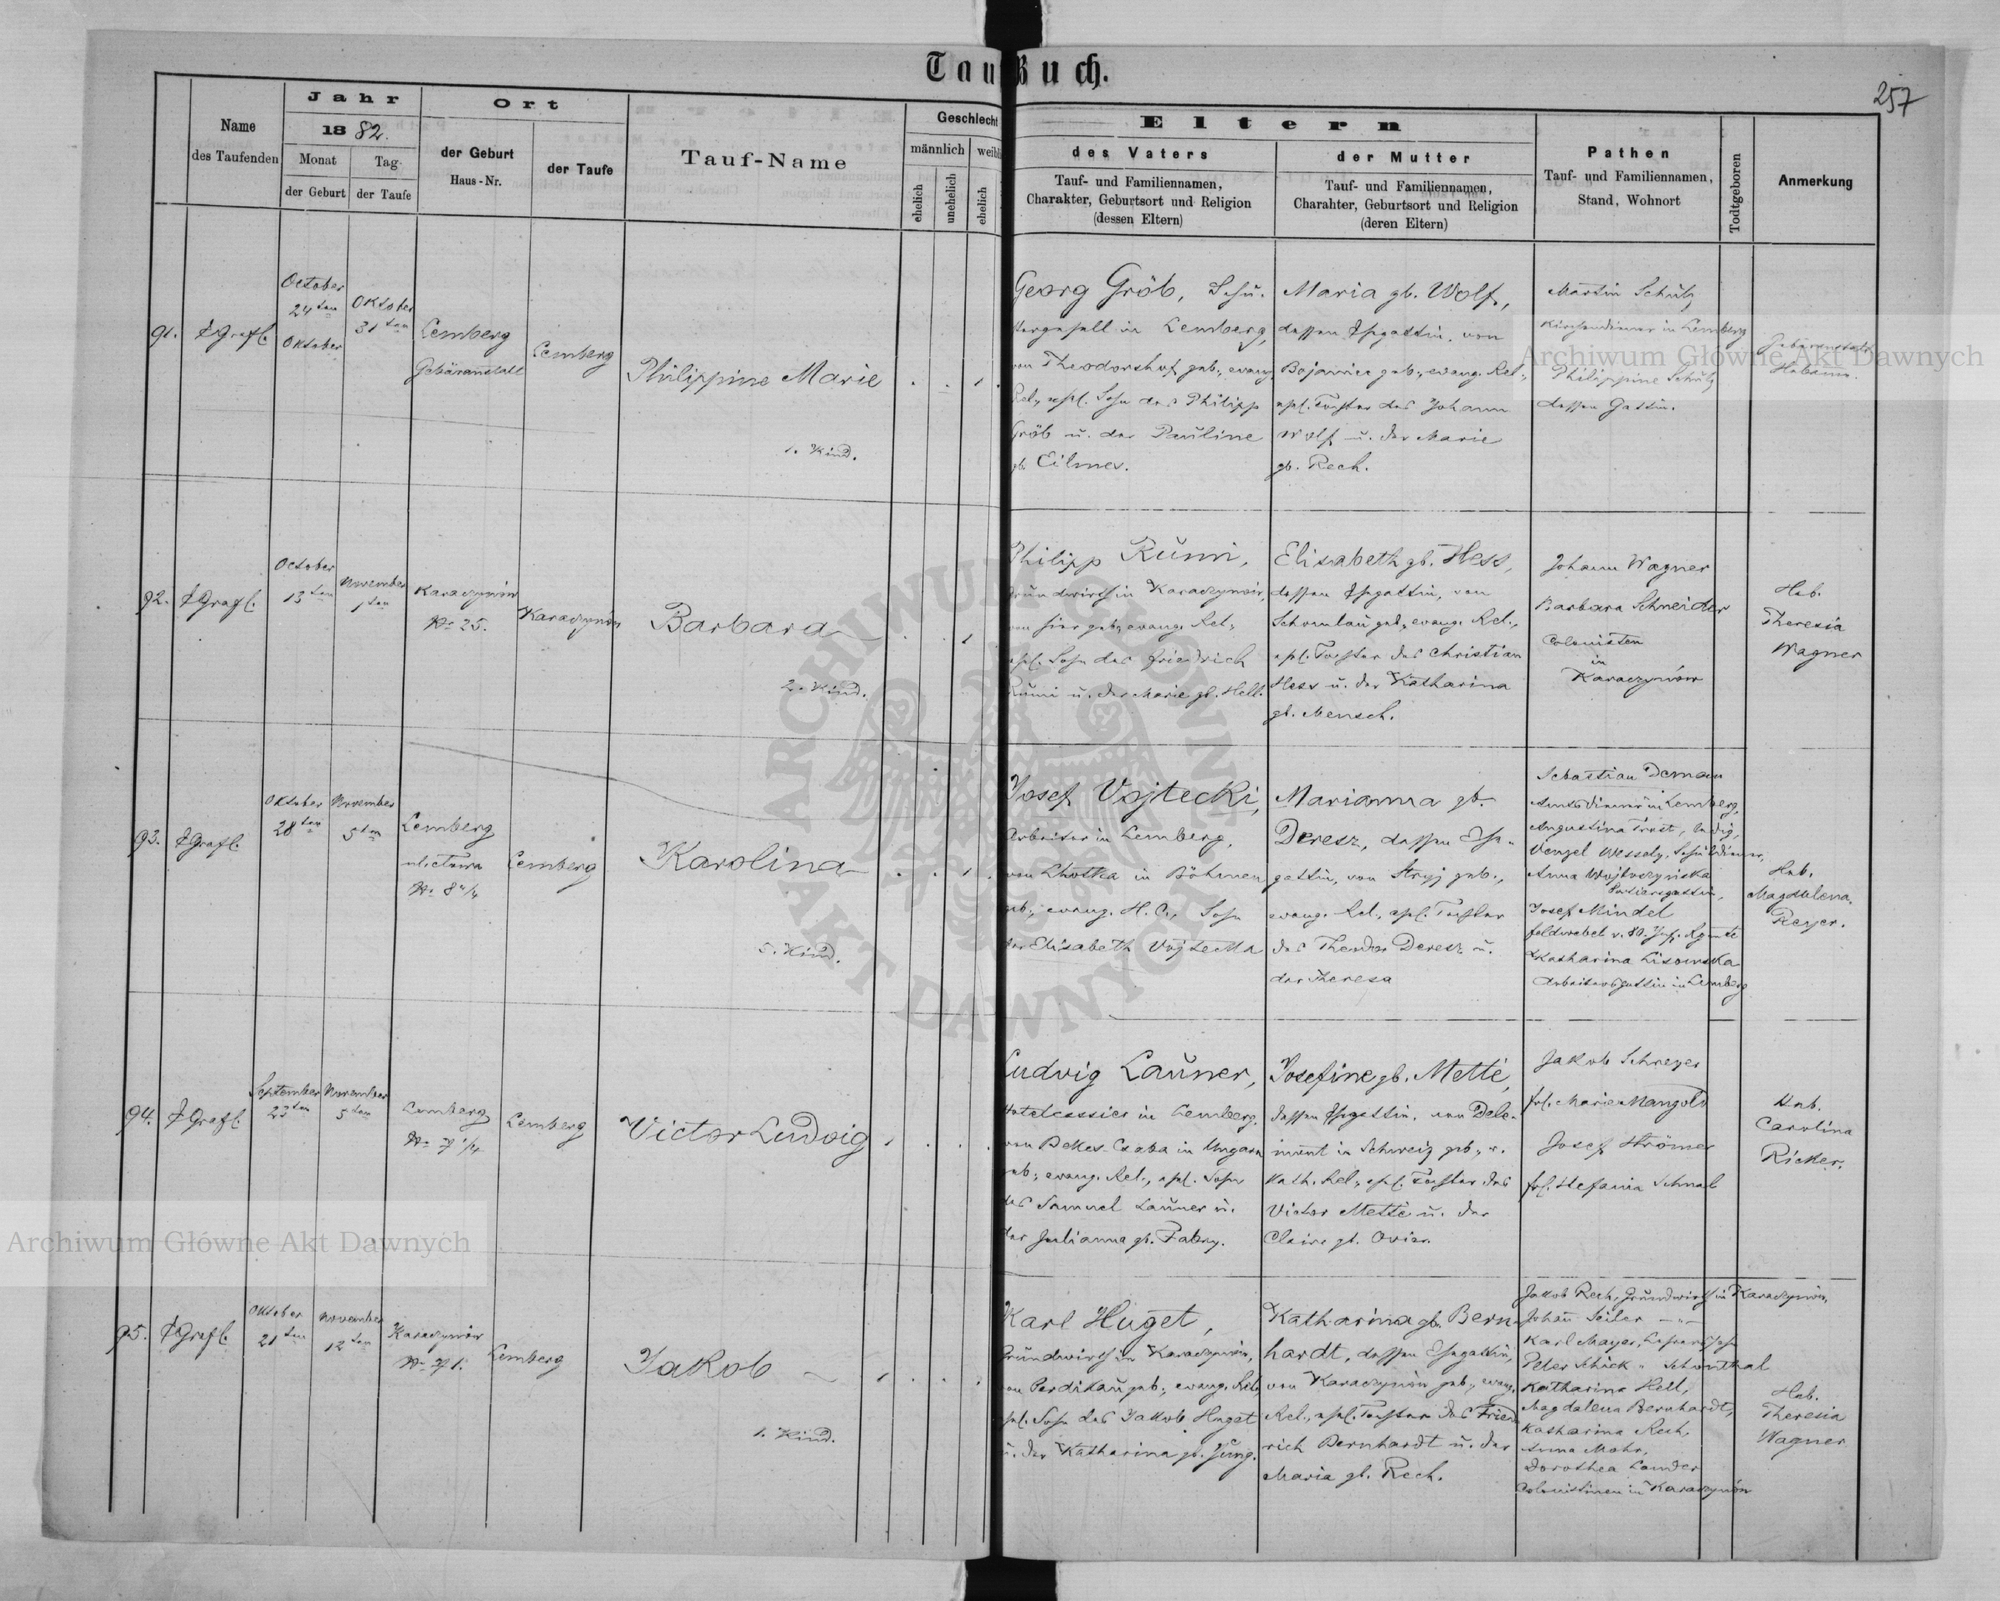 Taufbuch.
257
Name
des Taufenden
Jahr
1882.
Monat
der Geburt
Tag
der Taufe
Ort
der Geburt
Haus-Nr.
der Taufe
Tauf-Name
Geschlecht
männlich
ehelich
unehelich
ehelich
Eltern
des Vaters
Tauf- und Familiennamen,
Charakter, Geburtsort und Religion
(dessen Eltern)
der Mutter
Tauf- und Familiennamen,
Charahter, Geburtsort und Religion
(deren Eltern)
Pathen
Tauf- und Familiennamen,
Stand, Wohnort
Todtgeboren
Anmerkung
91.
October
24ten
Oktober
Oktober
31ten
Lemberg
Gebäranstalt
Lemberg
Philippine Marie
1. Kind.
Georg Gröb, Schu-
stergesell in Lemberg,
von Theodorshof geb., evang.
Rel., ehel. Sohn des Philipp
Gröb u. der Pauline
gb. Eilmes.
Maria gb. Wolf,
dessen Ehegattin, von
geb., evang. Rel.,
ehel. Tochter des Johann
Wolf u. der Marie
gb. Rech.
Martin Schulz
Kirchendiener in Lemberg
Philippine Schulz
dessen Gattin.
Gebäranstalt
Hebamme.
92.
October
13ten
November
1ten
Karaczynów
No 25.
Karaczynów
Barbara
2. Kind.
Philipp Rumi,
Grundwirth in Karaczynów,
von hier geb., evang. Rel.,
ehel. Sohn des Friedrich
Rumi u. der Marie gb. Hell.
Elisabeth gb. Hess,
dessen Ehegattin, von
geb., evang. Rel.,
ehel. Tochter des Christian
Hess u. der Katharina
gb. Mensch.
Johann Wagner
Barbara Schneider
Colonisten
in
Karaczynów
Heb.
Theresia
Wagner
93.
Oktober
28ten
November
5ten
Lemberg
No 8 4/4
Lemberg
Karolina
5. Kind.
Josef Vojtecki,
Arbeiter in Lemberg,
von Lhotka in Böhmen
geb., evang. H. C., Sohn
der Elisabeth
Marianna gb.
Deresz, dessen Ehe-
gattin, von Stryj geb.,
evang. Rel., ehel. Tochter
des Theodor Deresz u.
der Theresa
Sebastian
Amtsdiener in Lemberg,
Augustina Trost, ledig,
Wenzel Wessely, Schuldiener,
Anna
Portiersgattin,
Josef Mindel
Feldwebel v. 80. Inf. Rgmte
Katharina Lisowska
Arbeitersgattin in Lemberg
Heb.
Magdalena
Reyer.
94.
September
23ten
November
5ten
Lemberg
No 7 1/4
Lemberg
Victor Ludwig
Ludvig Launer,
in Lemberg,
von Bekes Czaba in Ungarn
geb., evang. Rel., ehel. Sohn
des Samuel Launer u.
der Julianna gb. Fabry.
Josefine gb. Metté,
dessen Ehegattin, von Dele-
mont in Schweiz geb., r.
kath. Rel., ehel. Tochter des
Victor Metté u. der
Claire gb.
Jakob Schreyer
frl. Marie Mangold
Josef Strömer
frl. Stefania Schnal
Heb.
Carolina
Ricker.
95.
Oktober
21ten
November
12ten
Karaczynów
Lemberg
Jakob
1. Kind.
Karl Huget,
Grundwirth in Karaczynów,
von geb., evang. Rel.,
ehel. Sohn des Jakob Huget
u. der Katharina gb. Jung.
Katharina gb. Bern-
hardt, dessen Ehegattin,
von Karaczynów geb., evang.
Rel., ehel. Tochter des Fried-
rich Bernhardt u. der
Maria gb. Rech.
Jakob Rech, Grundwirth in Karaczynów,
Johann Seiler
Karl Mayer,
Peter Schick " Schönthal
Katharina Hell,
Magdalena Bernhardt,
Katharina Rech,
Anna Mohr,
Dorothea Lander
Colonistinen in Karaczynów
Heb.
Theresia
Wagner
Archiwum Główne Akt Dawnych
Archiwum Główne Akt Dawnych
ARCHIWUM GŁÓWNE AKT DAWNYCH